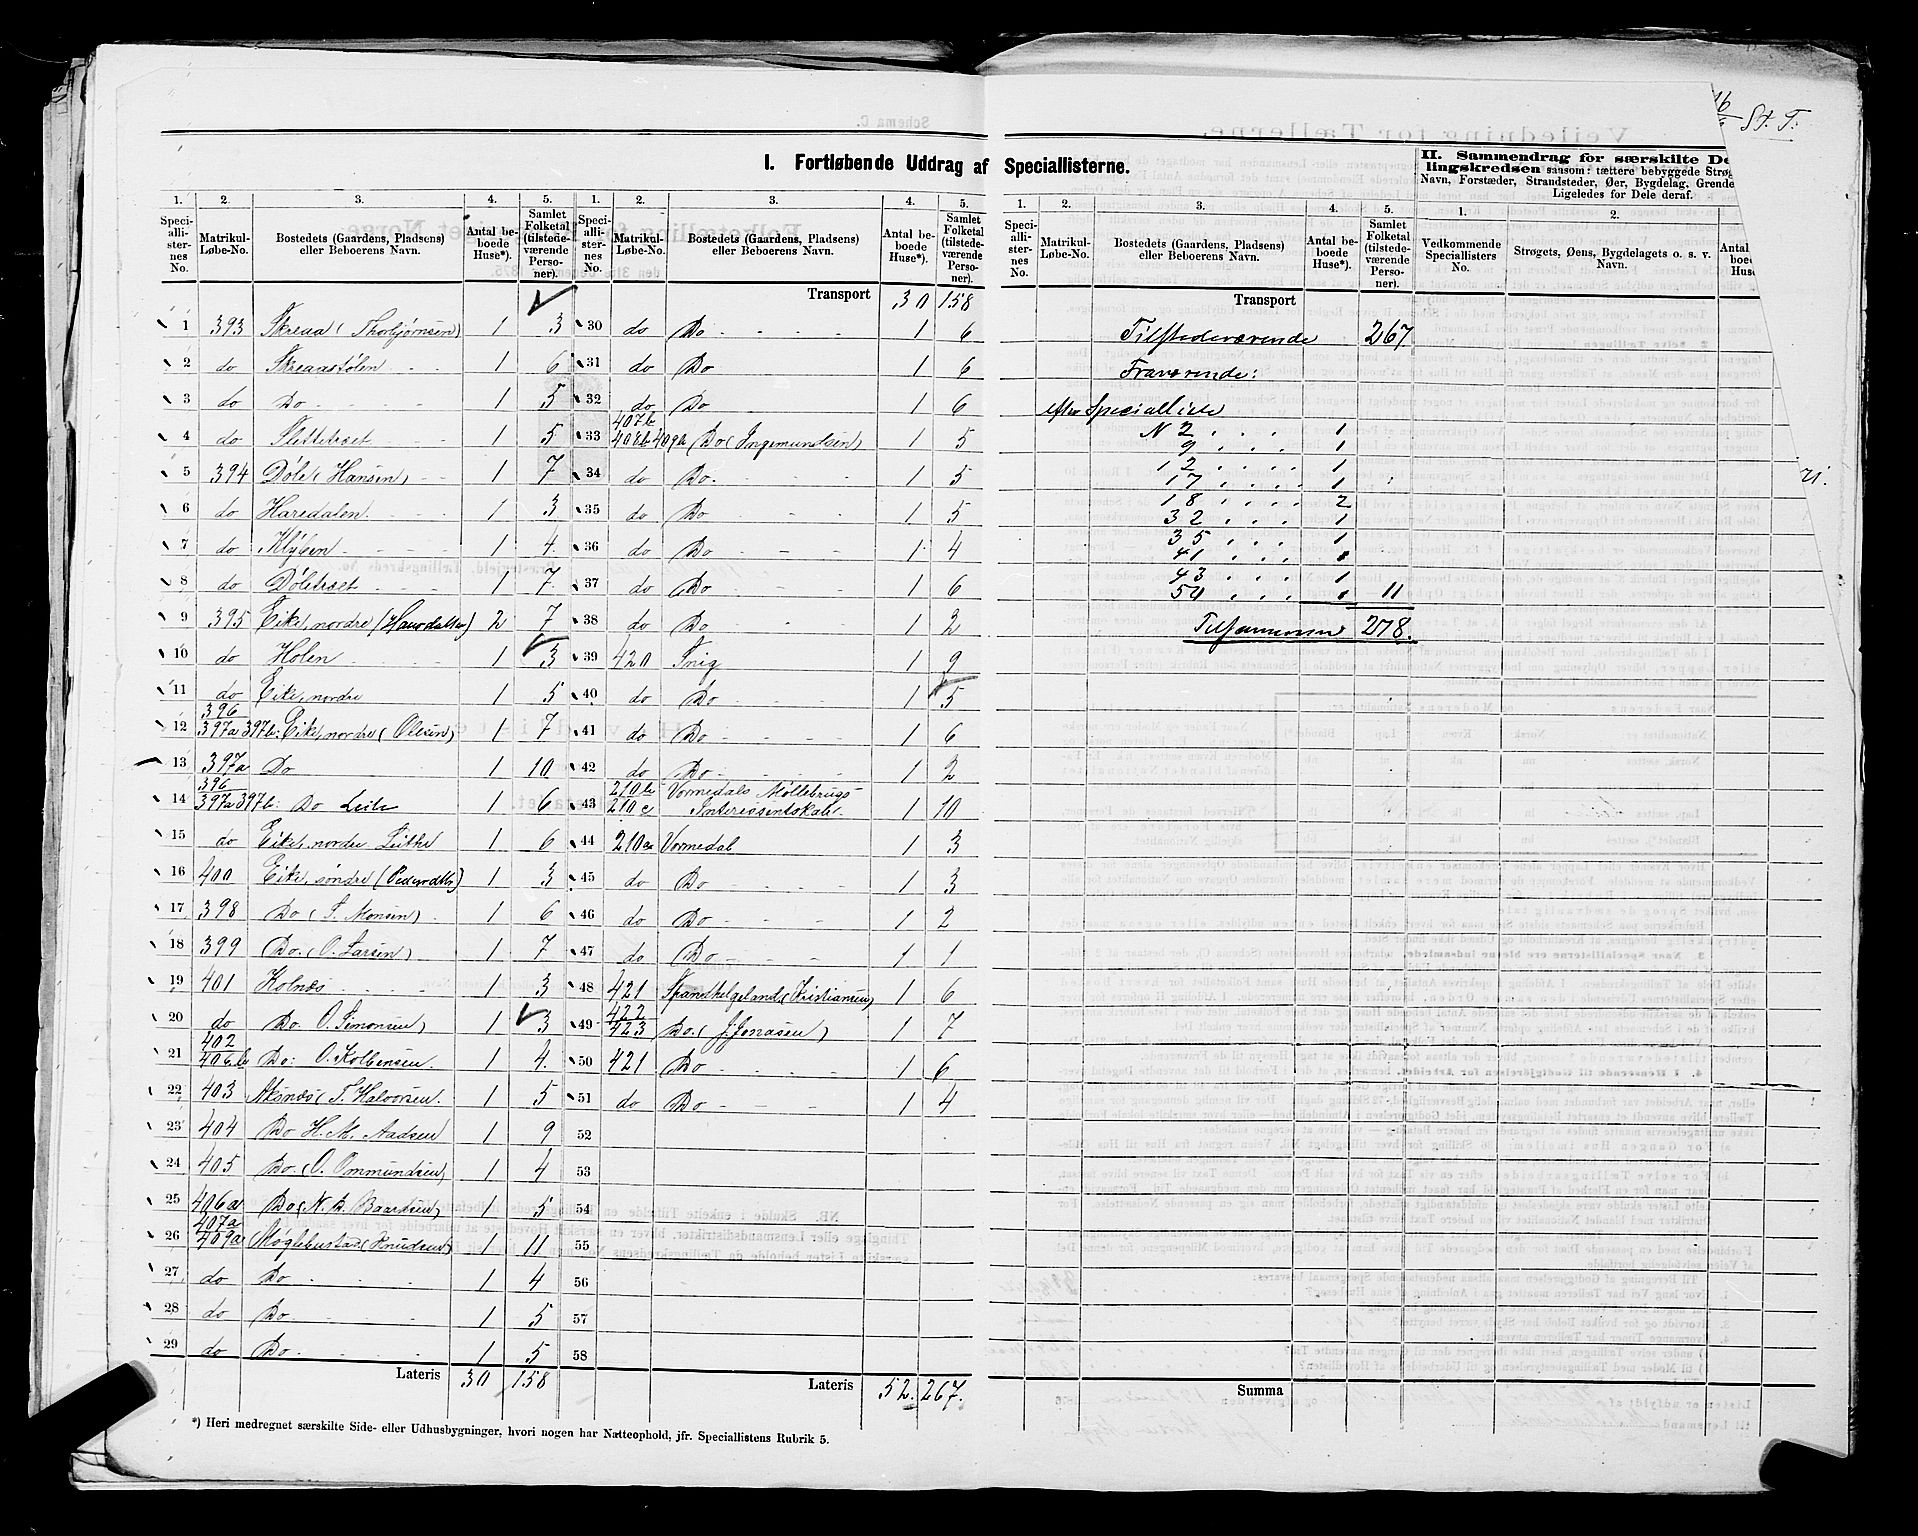 16 St. T.
I. Fortløbende Uddrag af Speciallisterne.
II. Sammendrag for særskilte De
lingskredsen saasom: tættere bebyggede Strøg
Navn, Forstæder, Strandsteder, Øer, Bygdelag, Grende
Ligeledes for Dele deraf.
1. 2. 3. 4. 5. 1. 2. 3. 4. 5. 1. 2. 3. 4. 5. 1. 2.
Speciallisternes No. Matrikul-Løbe-No. Bostedets (Gaardens, Pladsens) eller Beboerens Navn. Antal beboede Huse*). Samlet Folketal (tilstedeværende Personer).
Speciallisternes No. Matrikul-Løbe-No. Bostedets (Gaardens, Pladsens) eller Beboerens Navn. Antal beboede Huse*). Samlet Folketal (tilstedeværende Personer).
Speciallisternes No. Matrikul-Løbe-No. Bostedets (Gaardens, Pladsens) eller Beboerens Navn. Antal beboede Huse*). Samlet Folketal (tilstedeværende Personer).
Vedkommende Speciallisters No. Strøgets, Øens, Bygdelagets o. s. v. Navn. Antal boede Huse
1 393 Skreaa (Thorbjørnsen) 1 3
2 do Skreaastølen 1 6
3 do Do 1 5
4 do Slettetræet 1 5
5 394 Døle (Hansen) 1 7
6 do Haredalen 1 3
7 do Kløben 1 4
8 do Døletræet 1 7
9 395 Eike, nordre 2 7
10 do Holen 1 3
11 do Eike, nordre 1 5
12 396 397a 397b: Eike, nordre (Olesen) 1 7
13 397a Do 1 10
14 396 397a 397b: Do Leite 1 6
15 do Eike, nordre Leite 1 6
16 400 Eike, søndre 1 3
17 398 Do (T. Monsen) 1 6
18 399 Do. (O. Larsen) 1 7
19 401 Holnæs 1 3
20 do Do. O. Simonsen) 1 3
21 402 406b Do: O. Kolbensen. 1 4.
22 403 Aksnæs (T. Halvorsen. 1 5
23 404 Do H. M. Aadsen 1 9
24 405 Do. (O. Ommundsen) 1 4
25 406a Do (N. B. Baardsen) 1 5
26 407a 409a Møglebustad (Knudsen) 1 11
27 do Do 1 4
28 do Do 1 5
29 do Do 1 5
Lateris 30 158
Transport 30 158
30 do Do 1 6
31 do Do 1 6
32 do Do 1 6
33 407b 408b 409b Do (Ingemundsen) 1 5
34 do Do. 1 5
35 do Do 1 5
36 do Do 1 4
37 do Do 1 6
38 do Do 1 2
39 420 Snig 1 9
40 do Do 1 5
41 do Do 1 6
42 do Do 1 2
43 210b 210c Vormedals Møllebrugs Interessentskab. 1 10
44 210a Vormedal 1 3
45 do Do 1 3
46 do Do 1 2
47 do Do 1 1
48 421 Spanskelgeland (Kristiansen) 1 6
49 422 423 Do. (J. Jonassen) 1 7
50 421 Do 1 6
51 do Do 1 4
52
53
54
55
56
57
58
Lateris 52. 267.
Transport
Tilstedeværende 267
Fraværende:
efter Specialliste
N 2 1
9 1
12 1
17 1
18 2
32 1
35 1
41 1
43 1
50 1 11
Tilsammen 278.
Summa
*) Heri medregnet særskilte Side- eller Udhusbygninger, hvori nogen har Natteophold, jfr. Speciallistens Rubrik 5.